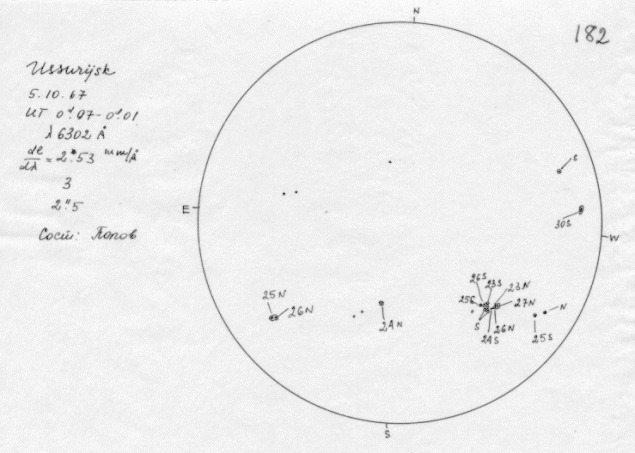 N
182
Ussurijsk
5.10.67
UT 0ʰ.97-0ʰ.01
λ 6302 Å
dl/dλ = 2.53 mm/Å
3
2".5
Сост: Попов
S
E
30S
W
25N
26N
24N
26S
23S
23N
25S
27N
S
24S
26N
N
25S
S